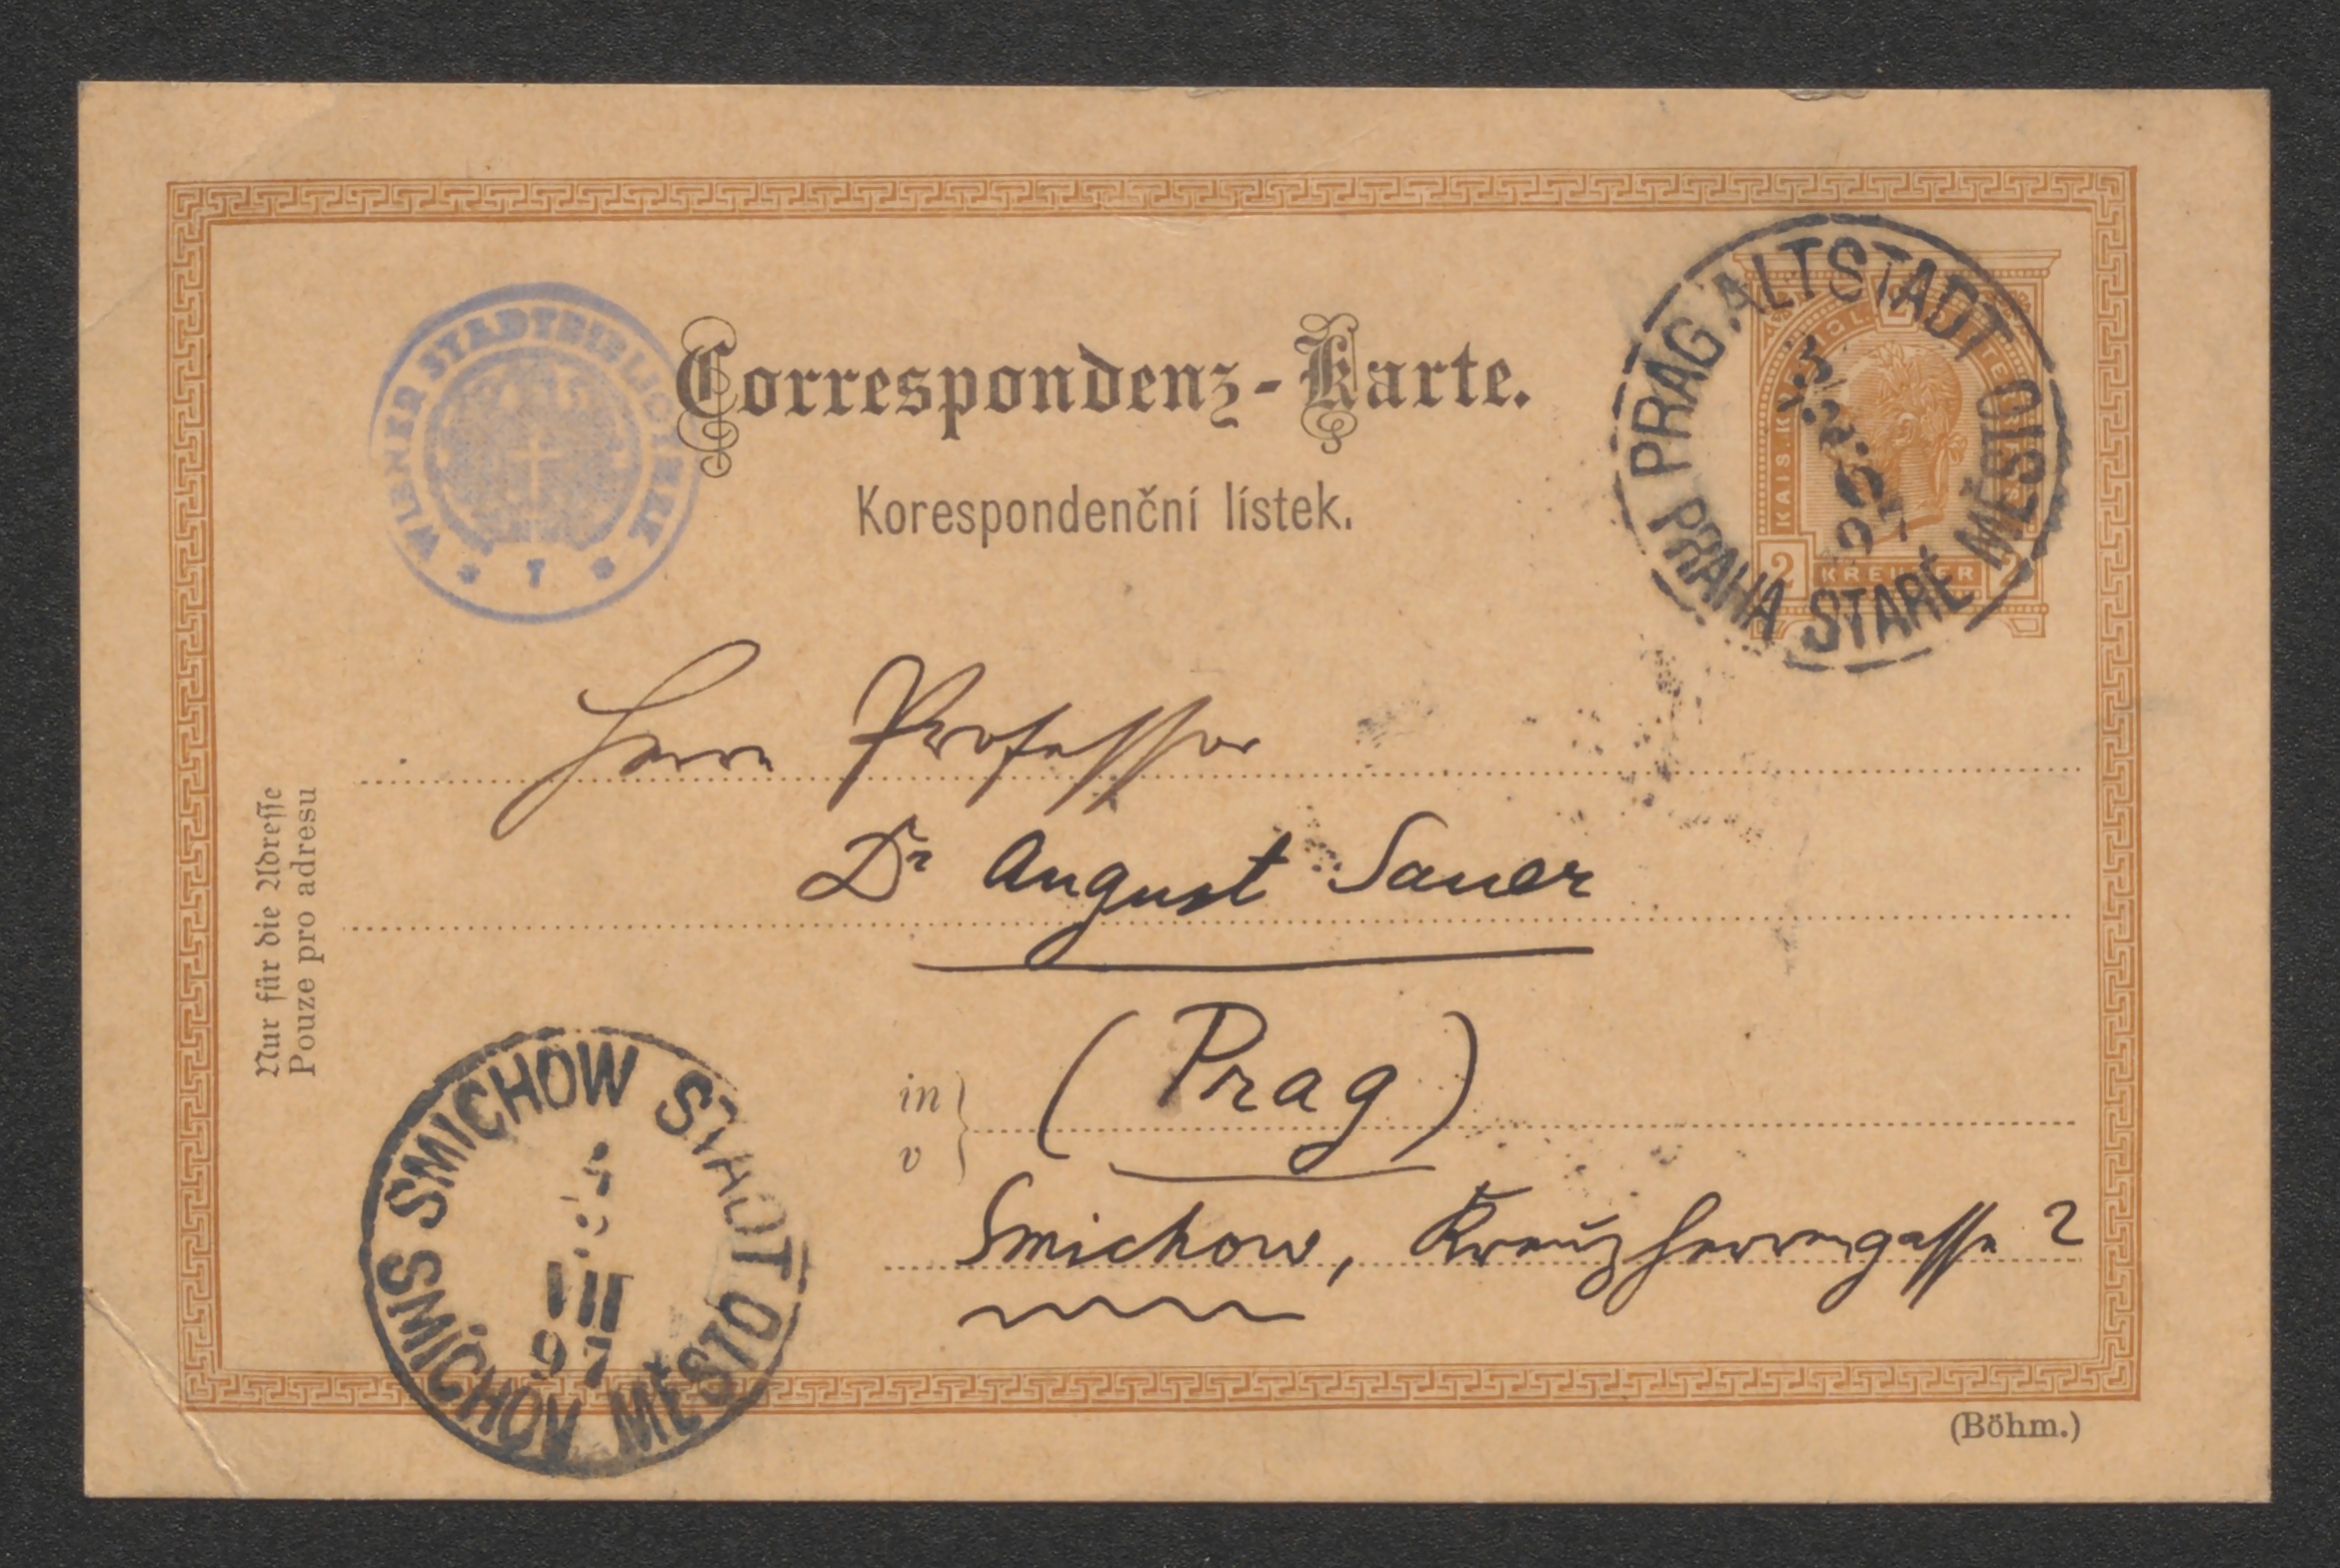 Correspondenz-Karte.
Korespondenční lístek.
WIENER STADTBIBLIOTHEK
PRAG ALTSTADT
PRAHA STARÉ MĚSTO
KREUZER
2 2
Herrn Professor
Dr August Sauer
in
v
(Prag)
Smichow, Kreuzherrengasse 2
Nur für die Adresse
Pouze pro adresu
SMICHOW STADT
SMÍCHOV MĚSTO
III
97
(Böhm.)